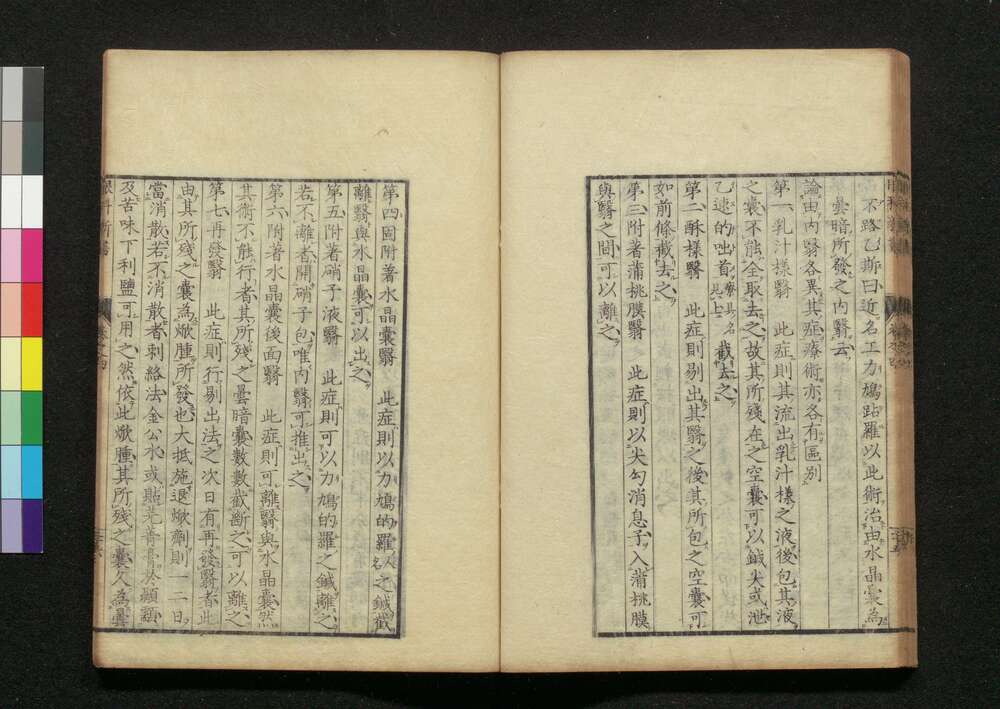 不路乙斯曰近名工力鳩跕羅以此術治由水晶囊為
曇暗所發之內翳云
論由內翳各異其症療術亦各有區別
第一乳汁樣翳 此症則其流出乳汁樣之液後包其液
之囊不能全取去之故其所殘在之空囊可以鍼尖或泄
乙逮的咄首 截去之
第二酥樣翳 此症則剔出其翳之後其所包之空囊可
如前條截去之
第三附著蒲桃膜翳 此症則以尖勾消息子入蒲桃膜
與翳之間可以離之
第四固附著水晶囊翳 此症則以力鳩的羅人名之鍼截
離翳與水晶囊可以出之
第五附著硝子液翳 此症則可以力鳩的羅之鍼離之
若不離者開硝子包唯內翳可推出之
第六附著水晶囊後面翳 此症則可離翳與水晶囊然
其術不能行者其所殘之曇暗囊數數截斷之可以離之
第七再發翳 此症則行剔出法之次日有再發翳者此
由其所殘之囊為焮腫所發也大抵施退焮劑則一二日
當消散若不消散者刺絡法金公水或貼芫菁膏於顳顬
及苦味下利鹽可用之然依此焮腫其所殘之囊久為曇